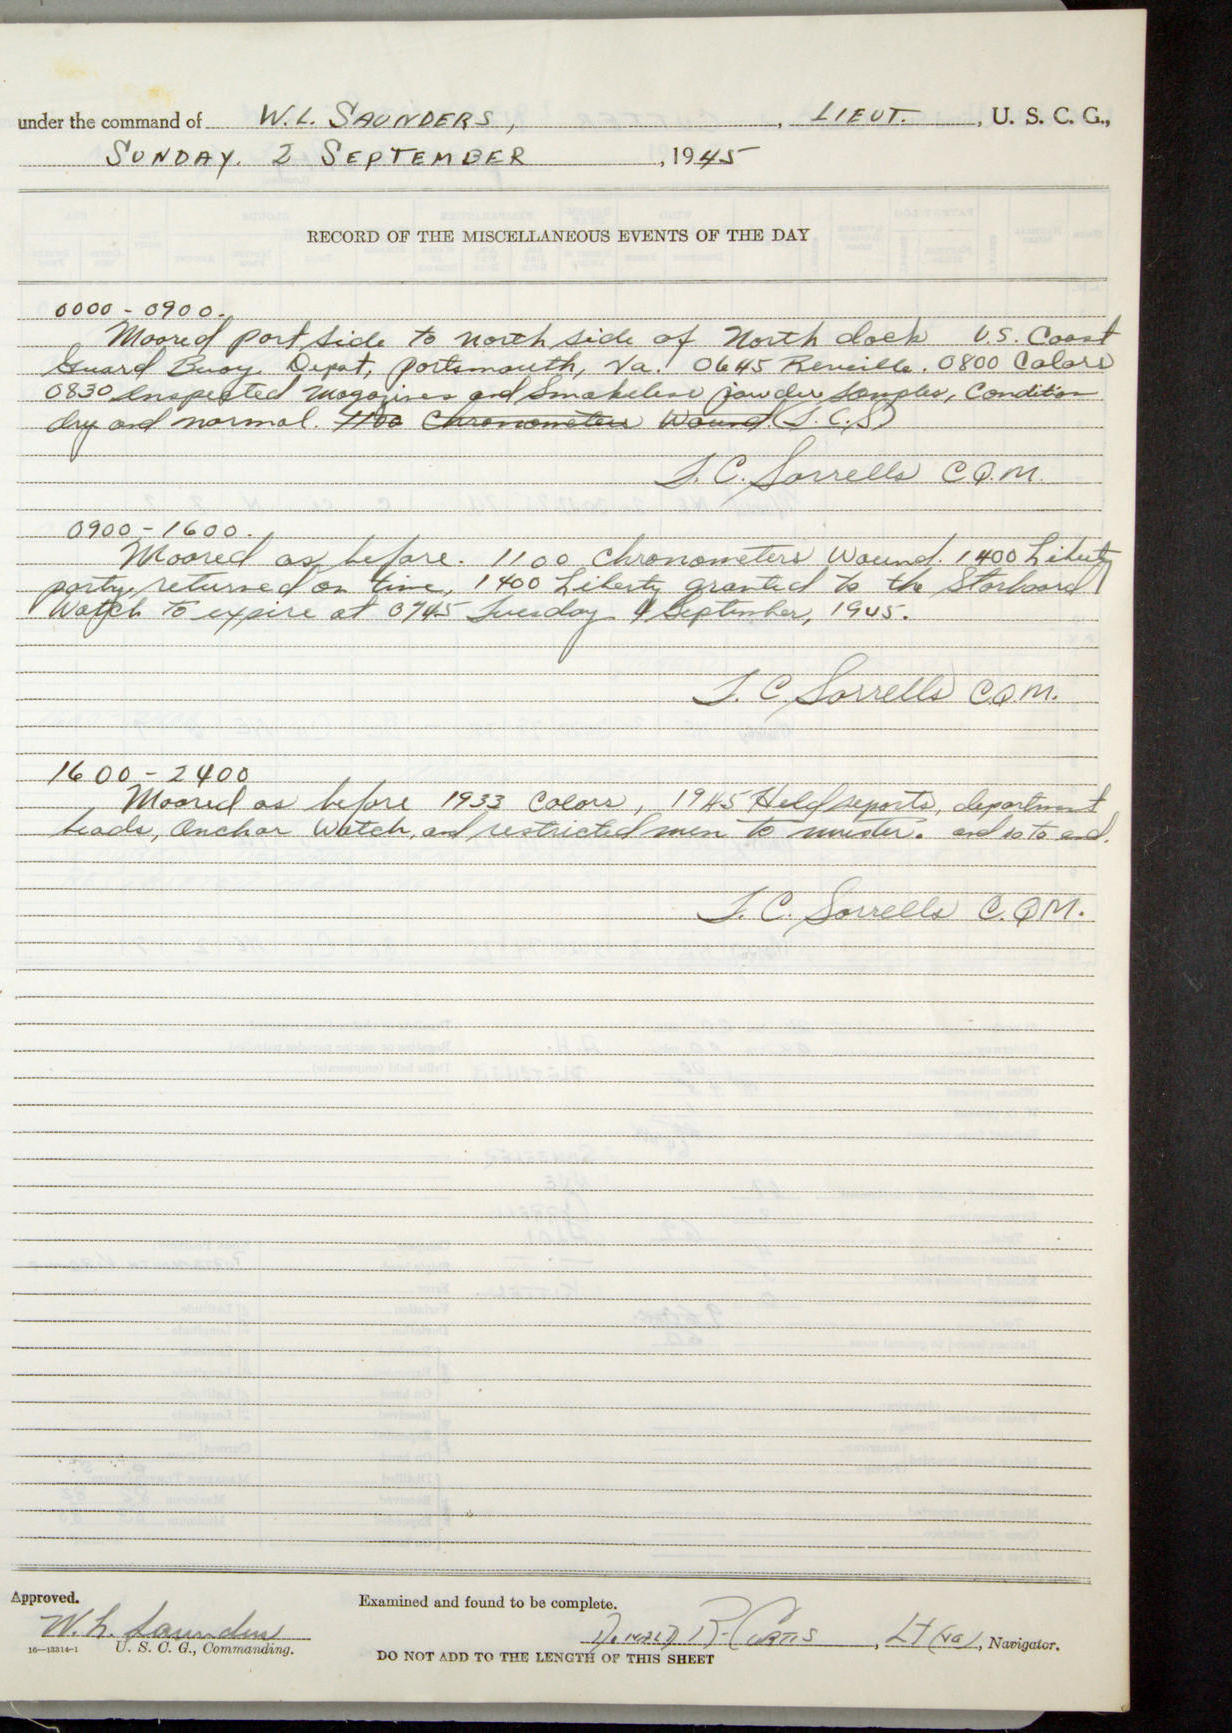 under the command of W. L. SAUNDERS, , LIEUT. , U. S. C. G.,
SUNDAY. 2 SEPTEMBER , 1945
RECORD OF THE MISCELLANEOUS EVENTS OF THE DAY
0000 - 0900.
Moored port side to north side of North dock U.S. Coast
Guard Buoy Depot, Portsmouth, Va. 0645 Reveille. 0800 Colors
0830 Inspected magazines and smokeless powder samples, Condition
dry and normal. 1100 Chronometers Wound. (S.C.S)
S. C. Sorrells C.Q.M.
0900 - 1600.
Moored as before. 1100 Chronometers Wound. 1400 Liberty
party returned on time, 1400 Liberty granted to the Starboard
Watch to expire at 0745 Tuesday 4 September, 1945.
S. C. Sorrells C.Q.M.
1600 - 2400
Moored as before 1933 Colors, 1945 Held reports, department
heads, Anchor Watch, and restricted men to muster. and so to end.
S. C. Sorrells C.Q.M.
Approved.
Examined and found to be complete.
W. L. Saunders
R. CURTIS , Lt , Navigator.
16—13314-1 U. S. C. G., Commanding.
DO NOT ADD TO THE LENGTH OF THIS SHEET